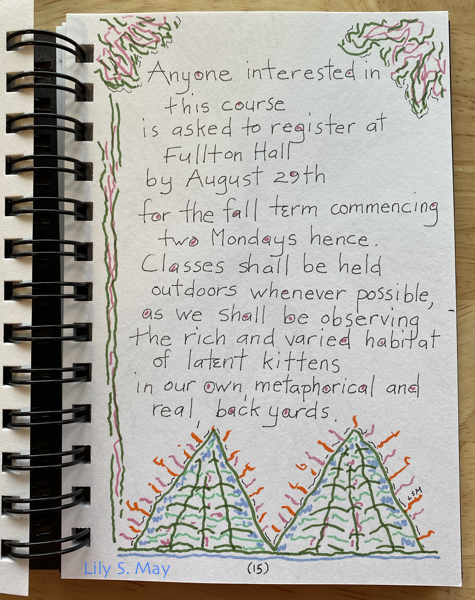 Anyone interested in
this course
is asked to register at
Fullton Hall
by August 29th
for the fall term commencing
two Mondays hence.
Classes shall be held
outdoors whenever possible,
as we shall be observing
the rich and varied habitat
of latent kittens
in our own, metaphorical and
real, back yards.
LSM
Lily S. May
(15)